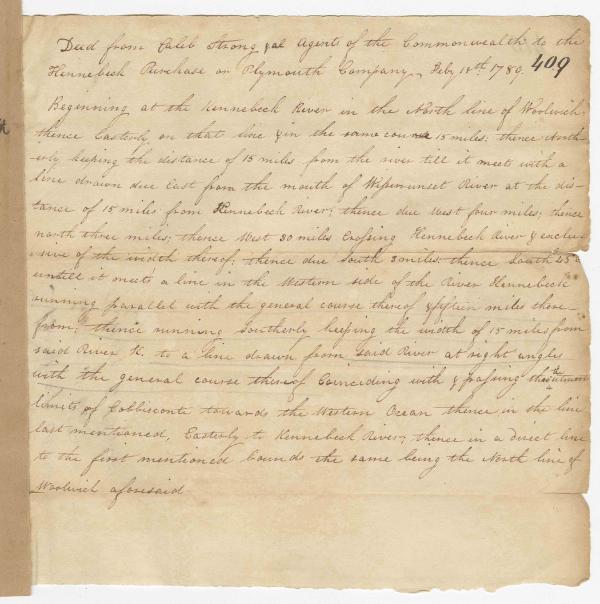 Deed from Caleb Strong & al Agents of the Commonwealth to the
Kennebeck Purchase or Plymouth Company, Feby 18th 1789. 409
Beginning at the Kennebeck River in the North line of Woolwich;
thence Easterly on that line & in the same course 15 miles; thence North
erly keeping the distance of 15 miles from the river till it meets with a
line drawn due East from the mouth of Wiperunset River at the dis-
tance of 15 miles from Kennebeck River; thence due West four miles; thence
north three miles; thence West 30 miles Crossing Kennebeck River & exclu
sive of the width thereof; thence due South 3 miles; thence South
untill it meets a line in the Western side of the River Kennebeck
running parallel with the general course thereof & fifteen miles there-
from; thence running Southerly keeping the width of 15 miles from
said River &c. to a line drawn from said River at right angles
with the general course thereof Coinciding with & passing thro' the utmost
limits of Cobbisconte towards the Western Ocean thence in the line
last mentioned, Easterly to Kennebeck River; thence in a direct line
to the first mentioned bounds the same being the North line of
Woolwich aforesaid